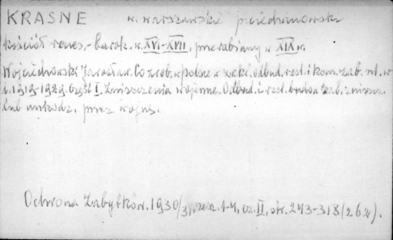 KRASNE w. warszawskie przedborowski
Kościół renes.-barok. w. XVI-XVII, przerabiany w XIX w.
Wojciechowski Jarosław. Co zrob. w Polsce w zakr. odbud. rest. i konserw. zab. szt. w
l. 1919-1929. Część I. Zniszczenia wojenne. Odbud. i rest. budow. zab. zniszcz.
lub uszkodz. przez wojnę.
Ochrona Zabytków. 1930/31, zesz. 1-4, cz. II, str. 243-318 (262).